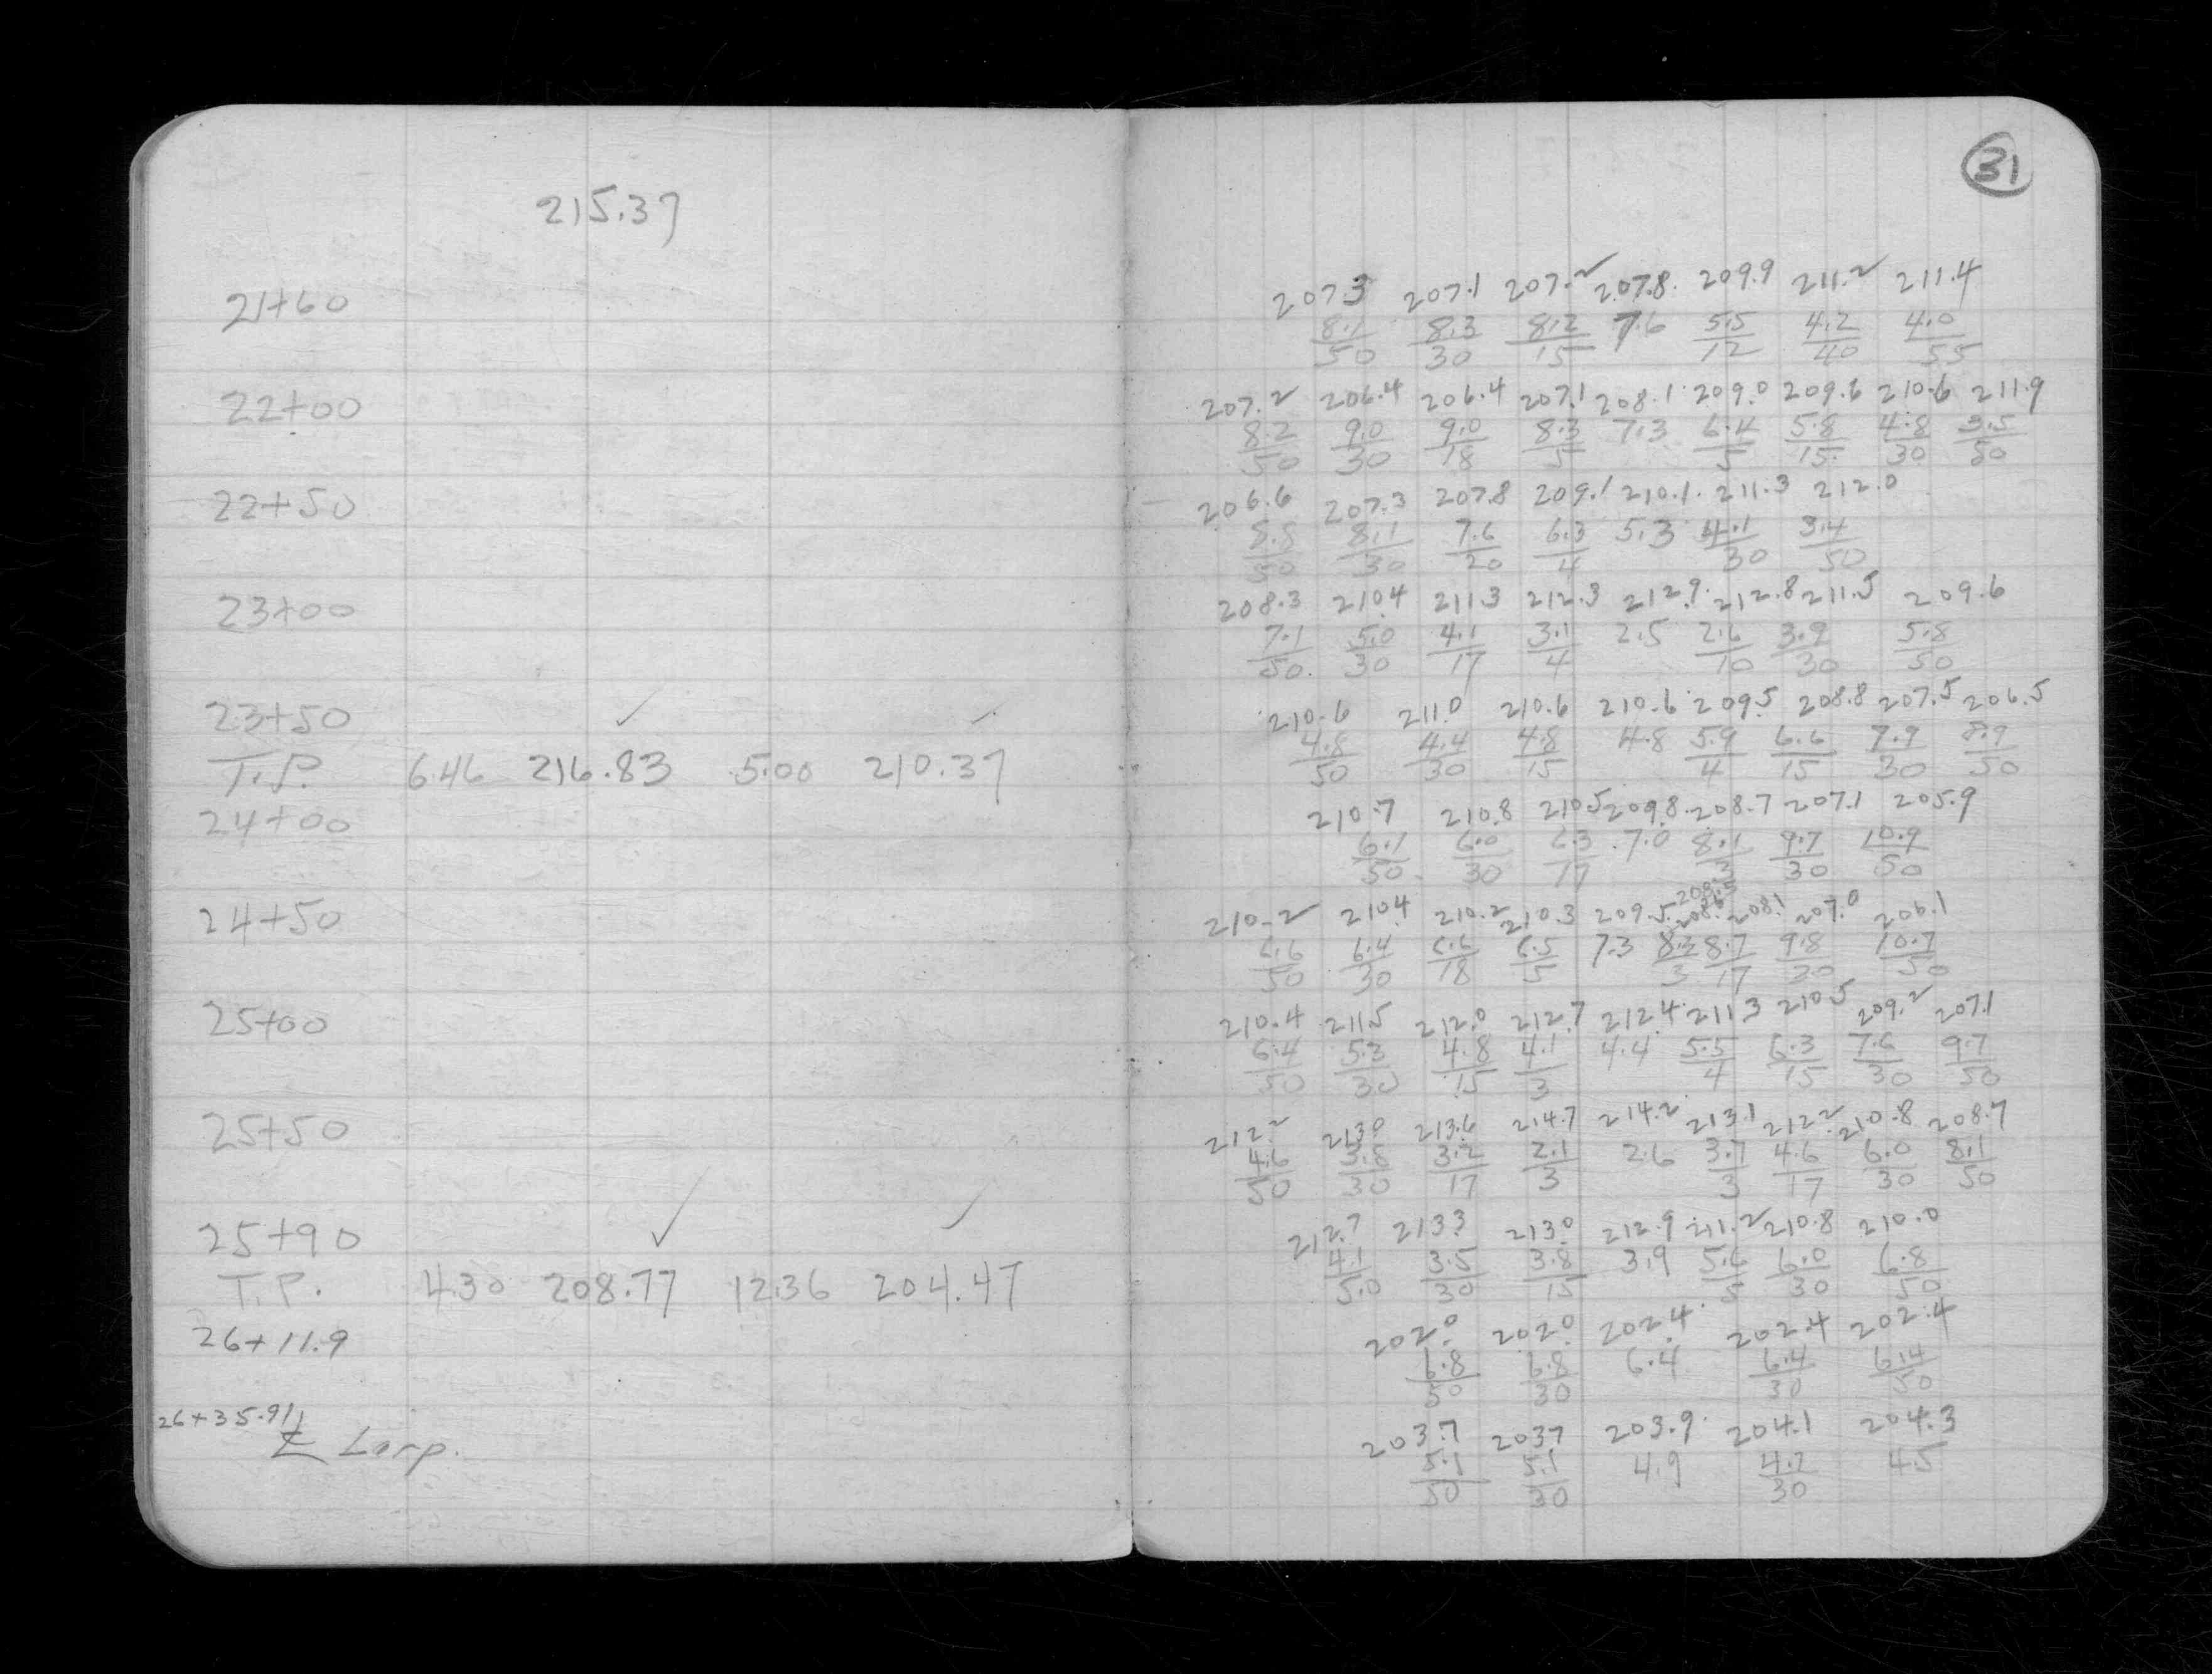 31
215.37
21+60
207.3 207.1 207.2 207.8 209.9 211.2 211.4
8.1 8.3 8.2 7.6 5.5 4.2 4.0
50 30 15 12 40 55
22+00
207.2 206.4 206.4 207.1 208.1 209.0 209.6 210.6 211.9
8.2 9.0 9.0 8.3 7.3 6.4 5.8 4.8 3.5
50 30 18 5 5 15 30 50
22+50
206.6 207.3 207.8 209.1 210.1 211.3 212.0
8.8 8.1 7.6 6.3 5.3 4.1 3.4
50 30 20 4 30 50
23+00
208.3 210.4 211.3 212.3 212.9 212.8 211.5 209.6
7.1 5.0 4.1 3.1 2.5 2.6 3.9 5.8
50 30 17 4 10 30 50
23+50
210.6 211.0 210.6 210.6 209.5 208.8 207.5 206.5
4.8 4.4 4.8 4.8 5.9 6.6 7.9 8.9
50 30 15 4 15 30 50
T.P. 6.46 216.83 5.00 210.37
24+00
210.7 210.8 210.5 209.8 208.7 207.1 205.9
6.1 6.0 6.3 7.0 8.1 9.7 10.9
50 30 17 3 30 50
24+50
208.5
210.2 210.4 210.2 210.3 209.5 208.1 207.0 206.1
6.6 6.4 6.6 6.5 7.3 8.3 8.7 9.8 10.7
50 30 18 5 3 17 30 50
25+00
210.4 211.5 212.0 212.7 212.4 211.3 210.5 209.2 207.1
6.4 5.3 4.8 4.1 4.4 5.5 6.3 7.6 9.7
50 30 15 3 4 15 30 50
25+50
212.2 213.0 213.6 214.7 214.2 213.1 212.2 210.8 208.7
4.6 3.8 3.2 2.1 2.6 3.7 4.6 6.0 8.1
50 30 17 3 3 17 30 50
25+90
212.7 213.3 213.0 212.9 211.2 210.8 210.0
4.1 3.5 3.8 3.9 5.6 6.0 6.8
50 30 15 5 30 50
T.P. 4.30 208.77 12.36 204.47
26+11.9
202.0 202.0 202.4 202.4 202.4
6.8 6.8 6.4 6.4 6.4
50 30 30 50
26+35.91
203.7 203.7 203.9 204.1 204.3
5.1 5.1 4.9 4.7 4.5
50 30 30